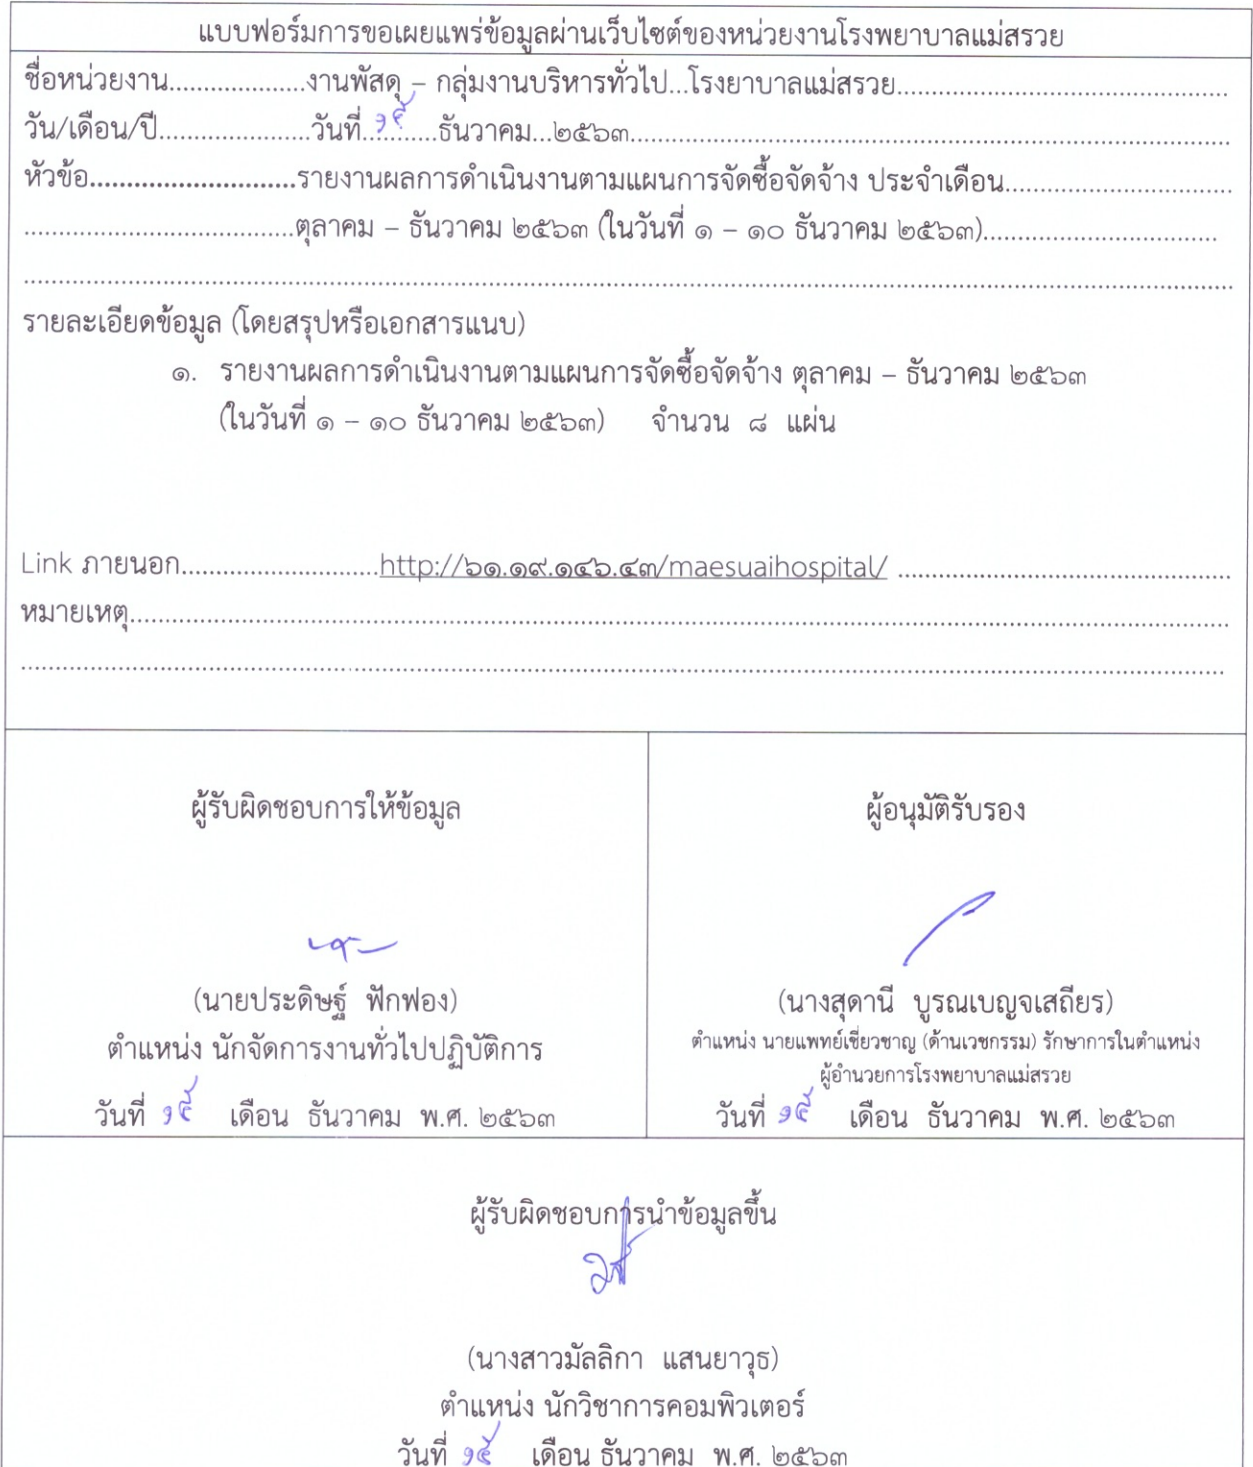 แบบฟอร์มการขอเผยแพร่ข้อมูลผ่านเว็บไซต์ของหน่วยงานโรงพยาบาลแม่สรวย
ชื่อหน่วยงาน...................งานพัสดุ – กลุ่มงานบริหารทั่วไป...โรงยาบาลแม่สรวย..............................................
วัน/เดือน/ปี.....................วันที่ ๑๕ ธันวาคม...๒๕๖๓....................................................................................
หัวข้อ............................รายงานผลการดำเนินงานตามแผนการจัดซื้อจัดจ้าง ประจำเดือน................................
......................................ตุลาคม – ธันวาคม ๒๕๖๓ (ในวันที่ ๑ – ๑๐ ธันวาคม ๒๕๖๓).................................
รายละเอียดข้อมูล (โดยสรุปหรือเอกสารแนบ)
๑. รายงานผลการดำเนินงานตามแผนการจัดซื้อจัดจ้าง ตุลาคม – ธันวาคม ๒๕๖๓
(ในวันที่ ๑ – ๑๐ ธันวาคม ๒๕๖๓) จำนวน ๘ แผ่น
Link ภายนอก............................http://๖๑.๑๙.๑๔๖.๔๓/maesuaihospital/ ...............................................
หมายเหตุ...........................................................................................................................................
ผู้รับผิดชอบการให้ข้อมูล
(นายประดิษฐ์ ฟักฟอง)
ตำแหน่ง นักจัดการงานทั่วไปปฏิบัติการ
วันที่ ๑๕ เดือน ธันวาคม พ.ศ. ๒๕๖๓
ผู้อนุมัติรับรอง
(นางสุดานี บูรณเบญจเสถียร)
ตำแหน่ง นายแพทย์เชี่ยวชาญ (ด้านเวชกรรม) รักษาการในตำแหน่ง
ผู้อำนวยการโรงพยาบาลแม่สรวย
วันที่ ๑๕ เดือน ธันวาคม พ.ศ. ๒๕๖๓
ผู้รับผิดชอบการนำข้อมูลขึ้น
(นางสาวมัลลิกา แสนยาวุธ)
ตำแหน่ง นักวิชาการคอมพิวเตอร์
วันที่ ๑๕ เดือน ธันวาคม พ.ศ. ๒๕๖๓